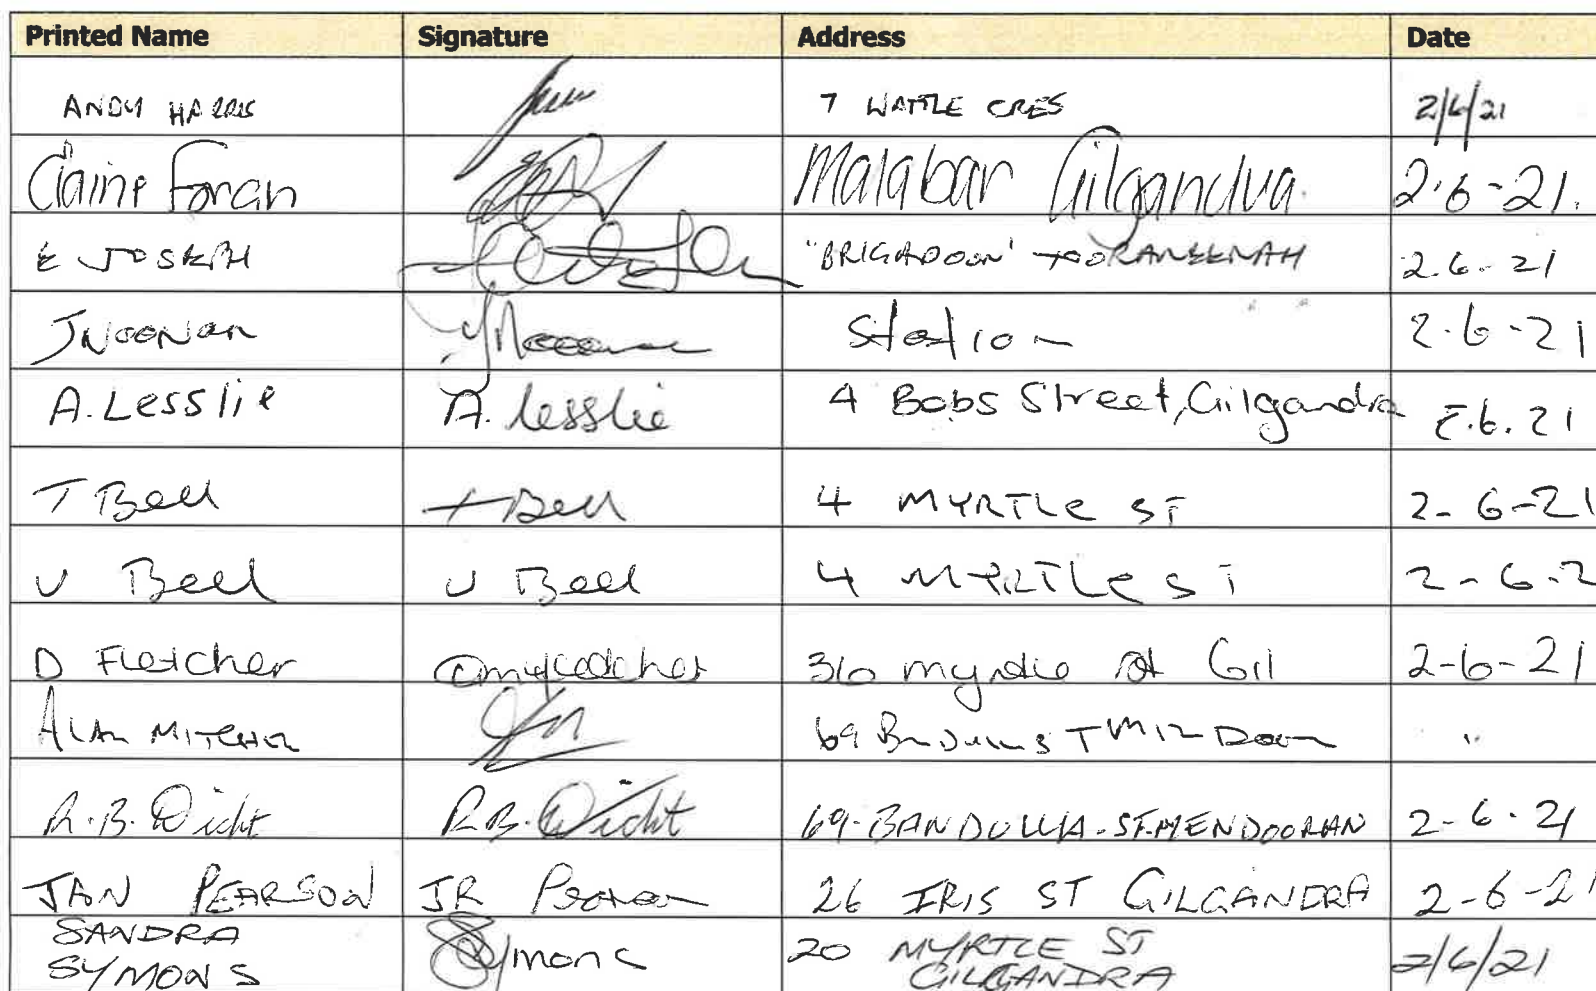 Printed Name Signature Address Date
ANDY HARRIS 7 WATTLE CRES 2/6/21
Elaine Foran Malabar Gilgandra. 2.6-21.
E JOSEPH "BRIGADOON" TOORAWEENAH 2.6.21
J NOONAN J Noonan Station 2.6-21
A. Lesslie A. Lesslie 4 Bobs Street, Gilgandra 2.6.21
T Bell T Bell 4 MYRTLE ST 2-6-21
V Bell V Bell 4 MYRTLE ST 2-6-2
D Fletcher 36 myrtle St Gil 2-6-21
ALAN MITCHELL 69 "
R.B. Dicht R.B. Dicht 69-BANDULLA-ST. MENDOORAN 2-6-21
JAN PEARSON JR Pearson 26 IRIS ST GILGANDRA 2-6-21
SANDRA
SYMONS Symons 20 MYRTLE ST
GILGANDRA 2/6/21